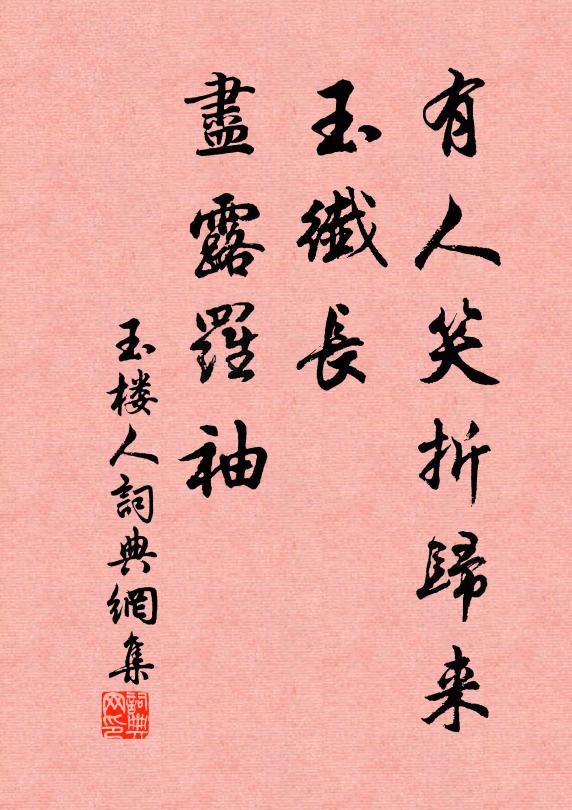 有人笑折歸来
玉纖長
盡露羅袖
玉楼人詞典網集
詞典网印